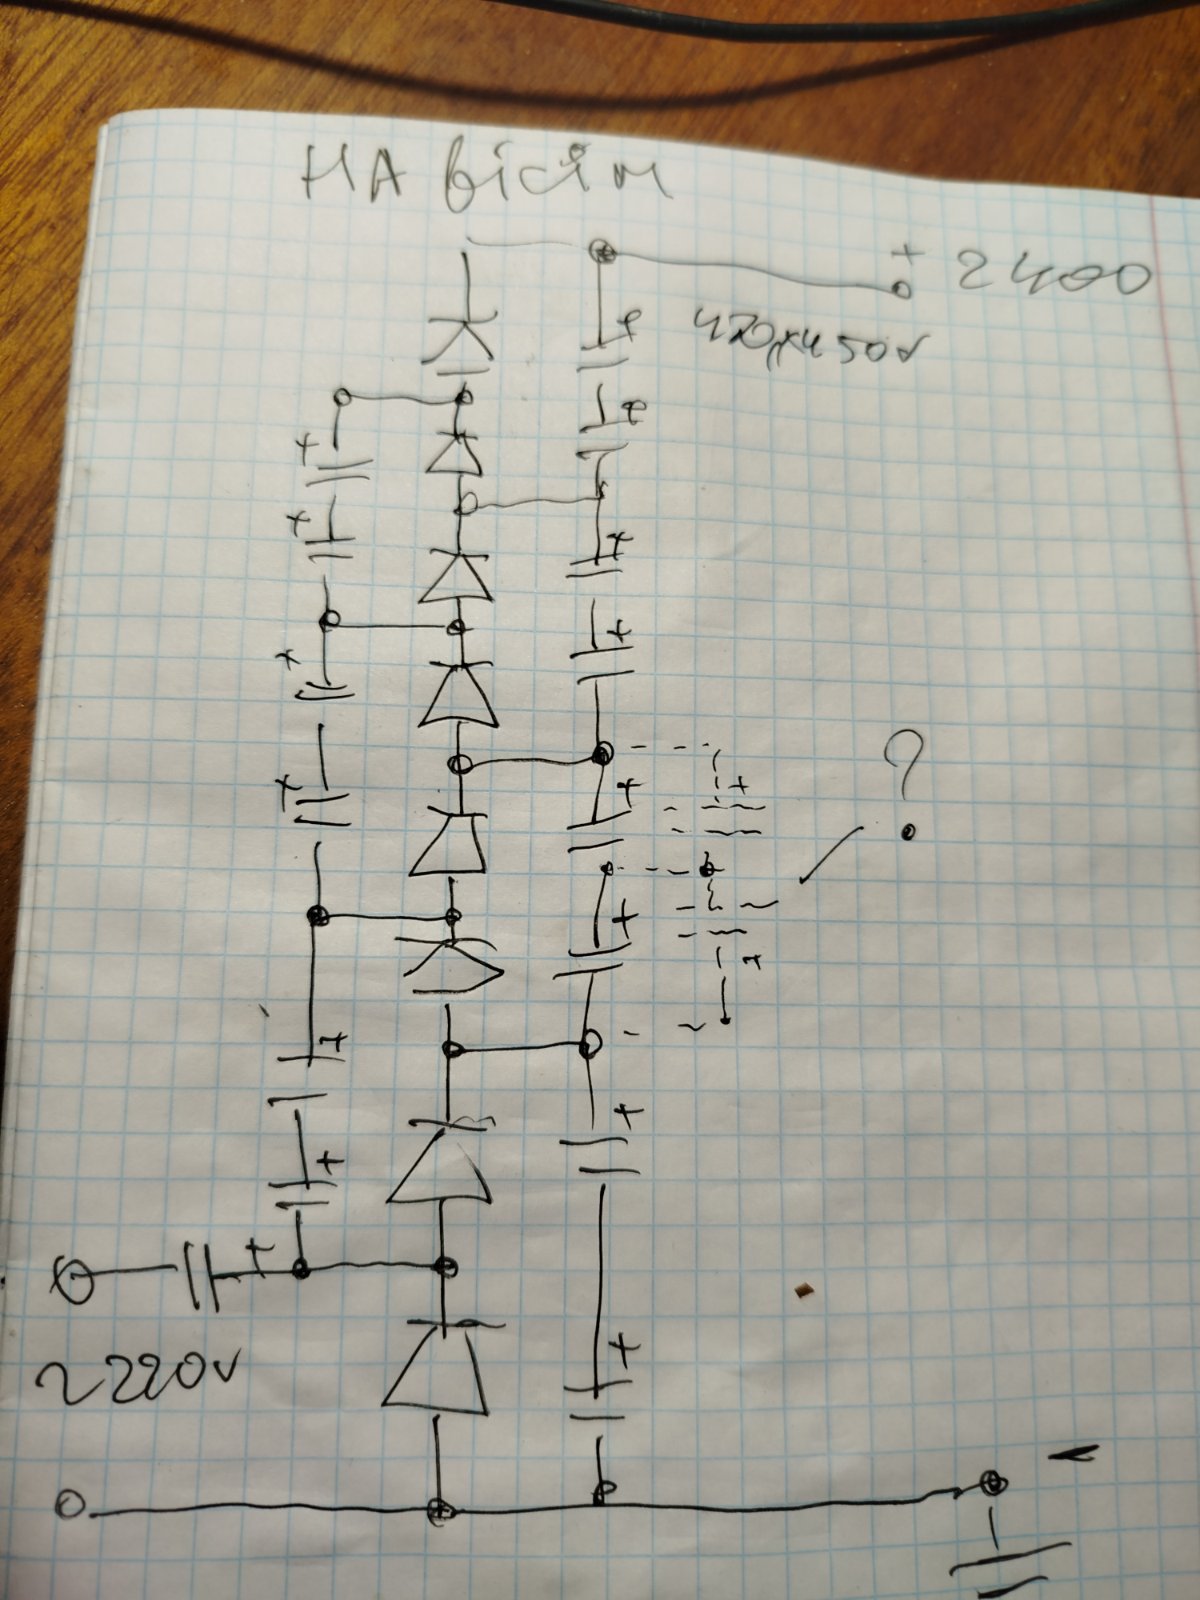 НА вісім
+ 2400
470µ×450v
?
~ 220v